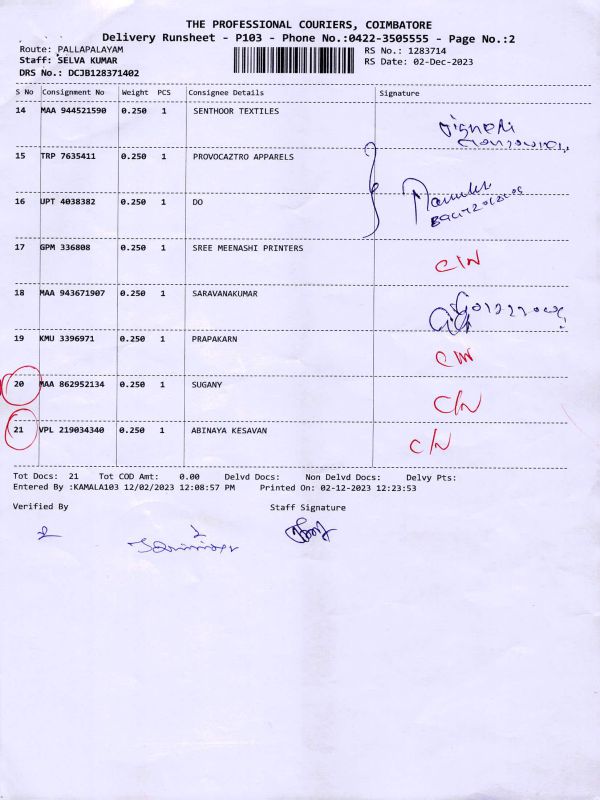 THE PROFESSIONAL COURIERS, COIMBATORE
Delivery Runsheet - P103 - Phone No.:0422-3505555 - Page No.:2
Route: PALLAPALAYAM RS No.: 1283714
Staff: SELVA KUMAR RS Date: 02-Dec-2023
DRS No.: DCJB128371402
S No Consignment No Weight PCS Consignee Details Signature
14 MAA 944521590 0.250 1 SENTHOOR TEXTILES
15 TRP 7635411 0.250 1 PROVOCAZTRO APPARELS
16 UPT 4038382 0.250 1 DO
17 GPM 336808 0.250 1 SREE MEENASHI PRINTERS C/N
18 MAA 943671907 0.250 1 SARAVANAKUMAR
19 KMU 3396971 0.250 1 PRAPAKARN C/N
20 MAA 862952134 0.250 1 SUGANY C/N
21 VPL 219034340 0.250 1 ABINAYA KESAVAN C/N
Tot Docs: 21 Tot COD Amt: 0.00 Delvd Docs: Non Delvd Docs: Delvy Pts:
Entered By :KAMALA103 12/02/2023 12:08:57 PM Printed On: 02-12-2023 12:23:53
Verified By Staff Signature